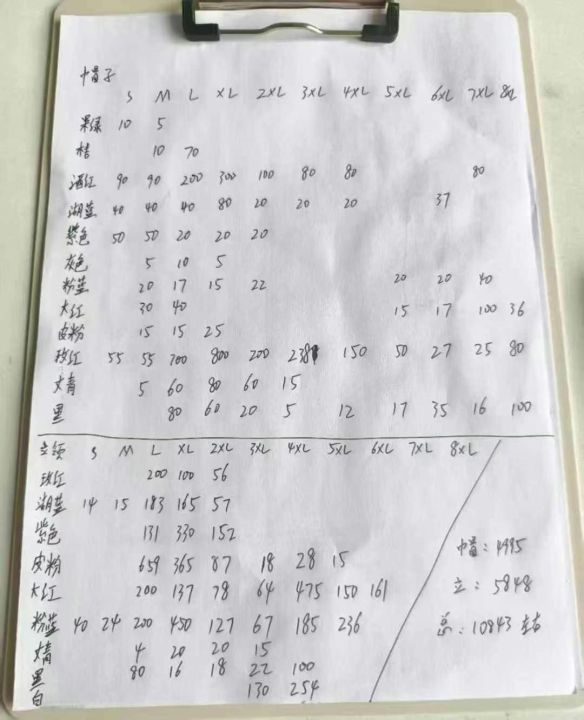 巾冒子
S M L XL 2XL 3XL 4XL 5XL 6XL 7XL 8XL
果绿 10 5
桔 10 70
酒红 90 90 200 300 100 80 80 80
湖蓝 40 40 40 80 20 20 20 37
紫色 50 50 20 20 20
灰色 5 10 5
粉蓝 20 17 15 22 20 20 40
大红 30 40 15 17 100 36
皮粉 15 15 25
玫红 55 55 700 800 200 238 150 50 27 25 80
丈青 5 60 80 60 15
黑 80 60 20 5 12 17 35 16 100
立领 S M L XL 2XL 3XL 4XL 5XL 6XL 7XL 8XL
玫红 200 100 56
湖蓝 14 15 183 165 57
紫色 131 330 152
皮粉 659 365 87 18 28 15
大红 200 137 78 64 475 150 161
粉蓝 40 24 200 450 127 67 185 236
丈青 4 20 20 15
黑 80 16 18 22 100
白 130 254
巾冒: 4995
立: 5848
总: 10843 左右